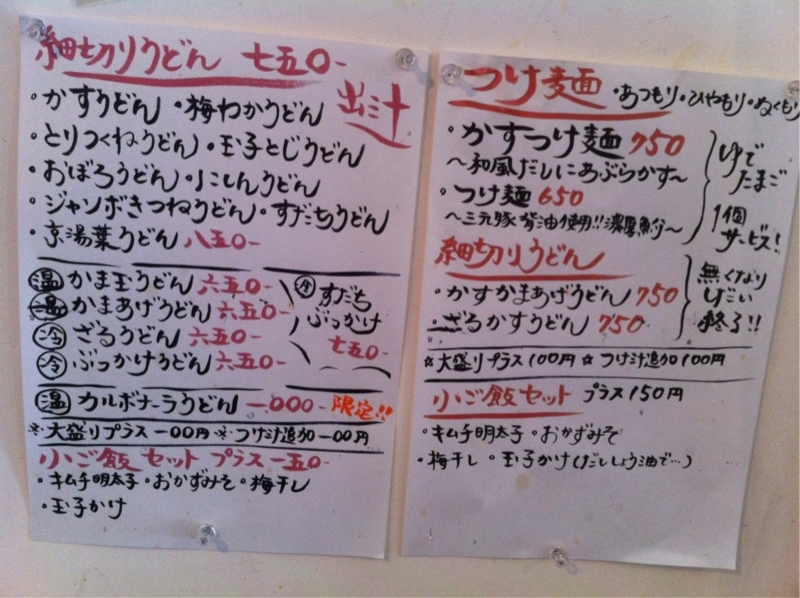 細切りうどん 七五〇-
出汁
・かすうどん ・梅わかうどん
・とりつくねうどん・玉子とじうどん
・おぼろうどん・にしんうどん
・ジャンボきつねうどん・すだちうどん
・京湯葉うどん 八五〇-
温 かま玉うどん 六五〇-
温 かまあげうどん 六五〇-
冷 ざるうどん 六五〇-
冷 ぶっかけうどん 六五〇-
冷 すだち
ぶっかけ
七五〇-
温 カルボナーラうどん 一〇〇〇- 限定!!
※大盛りプラス一〇〇円 ※つけ汁追加一〇〇円
小ご飯セット プラス一五〇-
・キムチ明太子・おかずみそ・梅干し
・玉子かけ
つけ麺 ・あつもり・ひやもり・ぬくもり
・かすつけ麺 750
〜和風だしにあぶらかす〜
・つけ麺 650
〜三元豚背油使用!!濃厚魚介〜
ゆで
たまご
1個
サービス!
細切りうどん
・かすかまあげうどん 750
・ざるかすうどん 750
無くなり
しだい
終了!!
☆大盛りプラス100円 ☆つけ汁追加100円
小ご飯セット プラス150円
・キムチ明太子 ・おかずみそ
・梅干し ・玉子かけ(だししょう油で…)